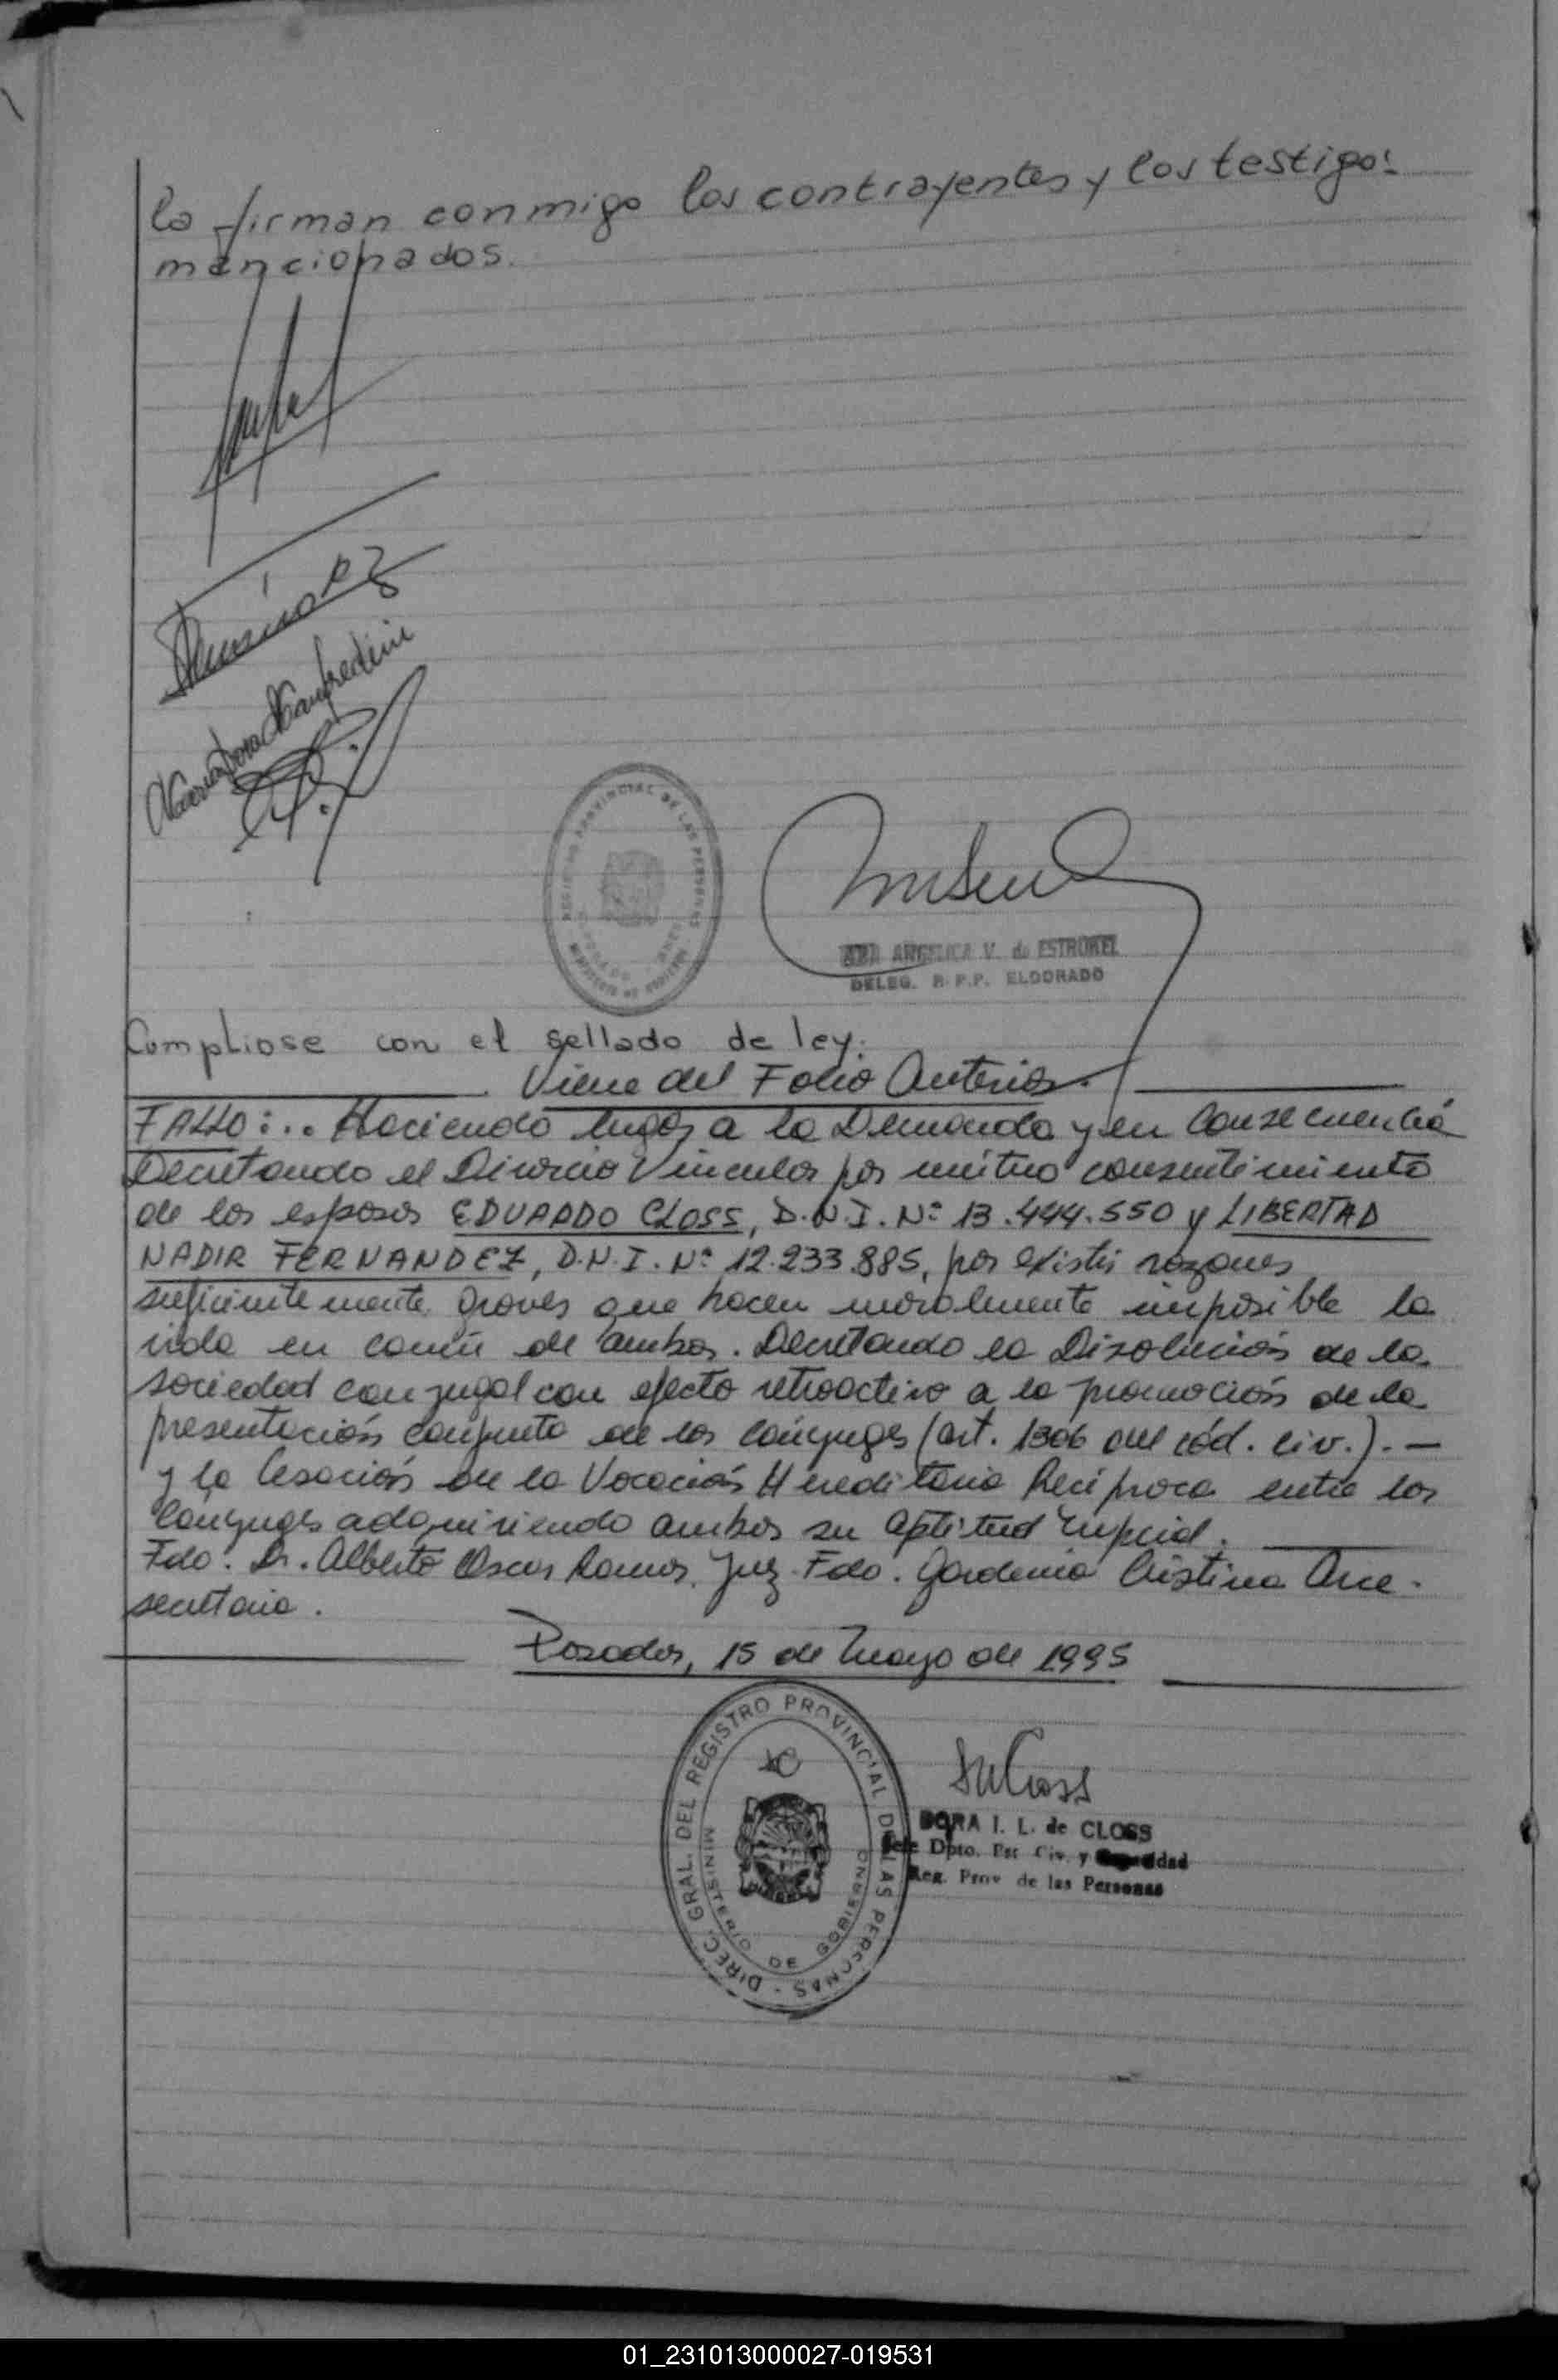 la firman conmigo los contrayentes y los testigos
mencionados.
Maria Dora Manfredini
REGISTRO PROVINCIAL DE LAS PERSONAS
ANGELICA V. de ESTROHEL
DELEG. R.P.P. ELDORADO
Compliose con el sellado de ley.
Viene del Folio Anterior.
FALLO: .. Haciendo lugar a la Demanda y en Consecuencia
Decretando el Divorcio Vincular por mútuo consentimiento
de los esposos EDUARDO CLOSS, D.N.I. Nº 13.444.550 y LIBERTAD
NADIR FERNANDEZ, D.N.I. Nº 12.233.885, por existir razones
suficientemente graves que hacen moralmente imposible la
vida en común de ambos. Decretando la Disolución de la
sociedad conyugal con efecto retroactivo a la promoción de la
presentación conjunta de los cónyuges (art. 1306 del cód. civ.). —
y la Cesación de la Vocación Hereditaria Recíproca entre los
Cónyuges adquiriendo ambos su aptitud nupcial.
Fdo. Dr. Alberto Oscar Ramos. Juez. Fdo. Gardenia Cristina Arce -
secretaria.
Posadas, 15 de Mayo de 1995
DIREC. GRAL. DEL REGISTRO PROVINCIAL DE LAS PERSONAS -
MINISTERIO DE GOBIERNO
DORA I. L. de CLOSS
Jefe Dpto. Est. Civ. y
Reg. Prov. de las Personas
01_231013000027-019531